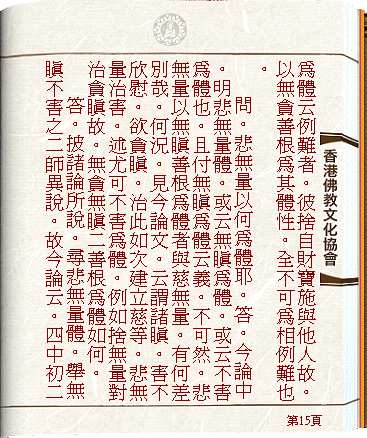 為體云例難者。彼捨自財寶施與他人故。
以無貪善根爲其體性。全不可爲相例難也
。
問。悲無量以何爲體耶。答。今論中
。明悲無量體。或云無瞋爲體。或云不害
爲體也。且付無瞋爲體云義。不可然。悲
無量以無瞋善根爲體者與慈無量。有何差
別哉。何況。見今論文。云謂諸瞋。害不
欣慰。欲貪瞋。治此如次建立慈等。悲無
量治害。述尤可不害爲體。例如捨無量對
治貪瞋故。無貪無瞋二善根爲體如何。
答。披諸論所說。尋悲無量體。舉無
瞋不害之二師異說。故今論云。四中初二
香港佛教文化協會
第15頁